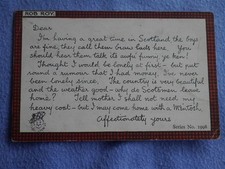 ROB ROY.
Dear
I'm having a great time in Scotland the boys
are fine, they call them braw lads here. You
should hear them talk its awfu' funny ye ken!
Thought I would be lonely at first – but put
round a rumour that I had money. I've never
been lonely since. The country is very beautiful
and the weather good – why do Scotsmen leave
home? Tell mother I shall not need my
heavy coat – but I may come home with a M'intosh.
Affectionately yours
Series No. 1998